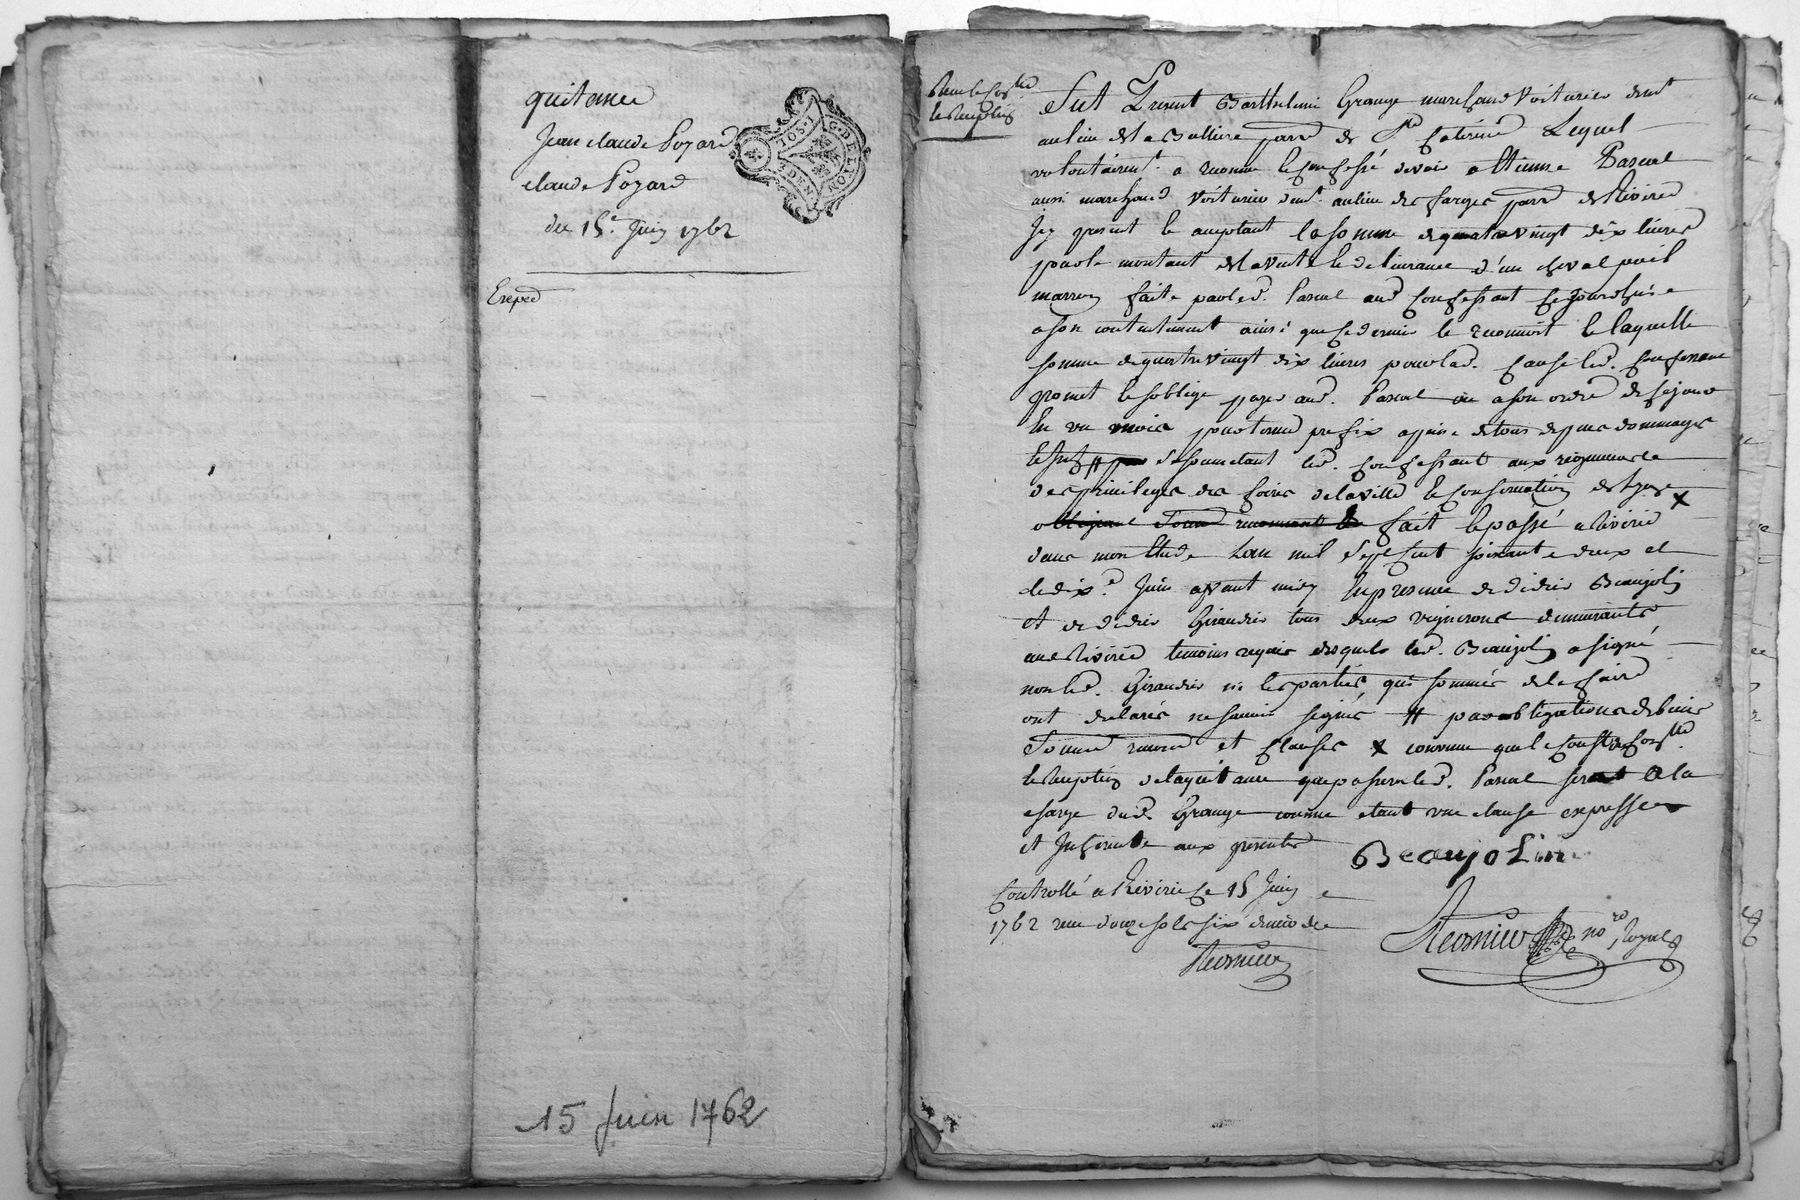 quitance
Jean claude Poyard
claude Poyard
du 15e Juin 1762
G. DE LYON
SOL
DEN
Exped
15 Juin 1762
Fut Present Barthelemi Grange marchand Voiturier demt
au lieu de la parr de Ste Caterine Lequel
volontairemt a reconnu & confessé devoir a Etienne Pascal
aussi marchand Voiturier demt au lieu des farges parr de Riviried
Icy present & acceptant la somme de quatrevingt dix livres
pour le montant de la vente & delivrance d'un cheval poil
marron faite par led. Pascal aud confessant ce jourdhui
a son contentement ainsi que ce dernier le reconnoit & laquelle
somme de quatrevingt dix livres pour lad. cause led. confessant
promet & soblige payer aud. Pascal ou a son ordre de ce jour
En un mois pour terme prefix a peine de tous depens dommages
& Int # se soumetant led. confessant aux rigueurs
des privileges des foires de la ville & Conservation de Lyon x
obligeant reconnoissant fait & passé a Riviried
dans mon Etude Lan mil Sept Cent soixante deux et
le dixe Juin avant midy En presence de didier Beaujolin
et de didier Giraudier tous deux vignerons demeurants
aud Riviried temoins requis desquels led. Beaujolin a signé
non led. Giraudier ni les parties, qui sommés de le faire
ont declarés ne savoir signés # par obligations de biens
et clauses x convenu que le Coust du
& de la quitance que passera led. Pascal serat a la
charge dud. Grange comme etant une clause expresse
et Inherente aux presentes
Beaujolin
Controllé a Riviried ce 15 Juin
1762 reçu douze sols six deniers
no.re Royal